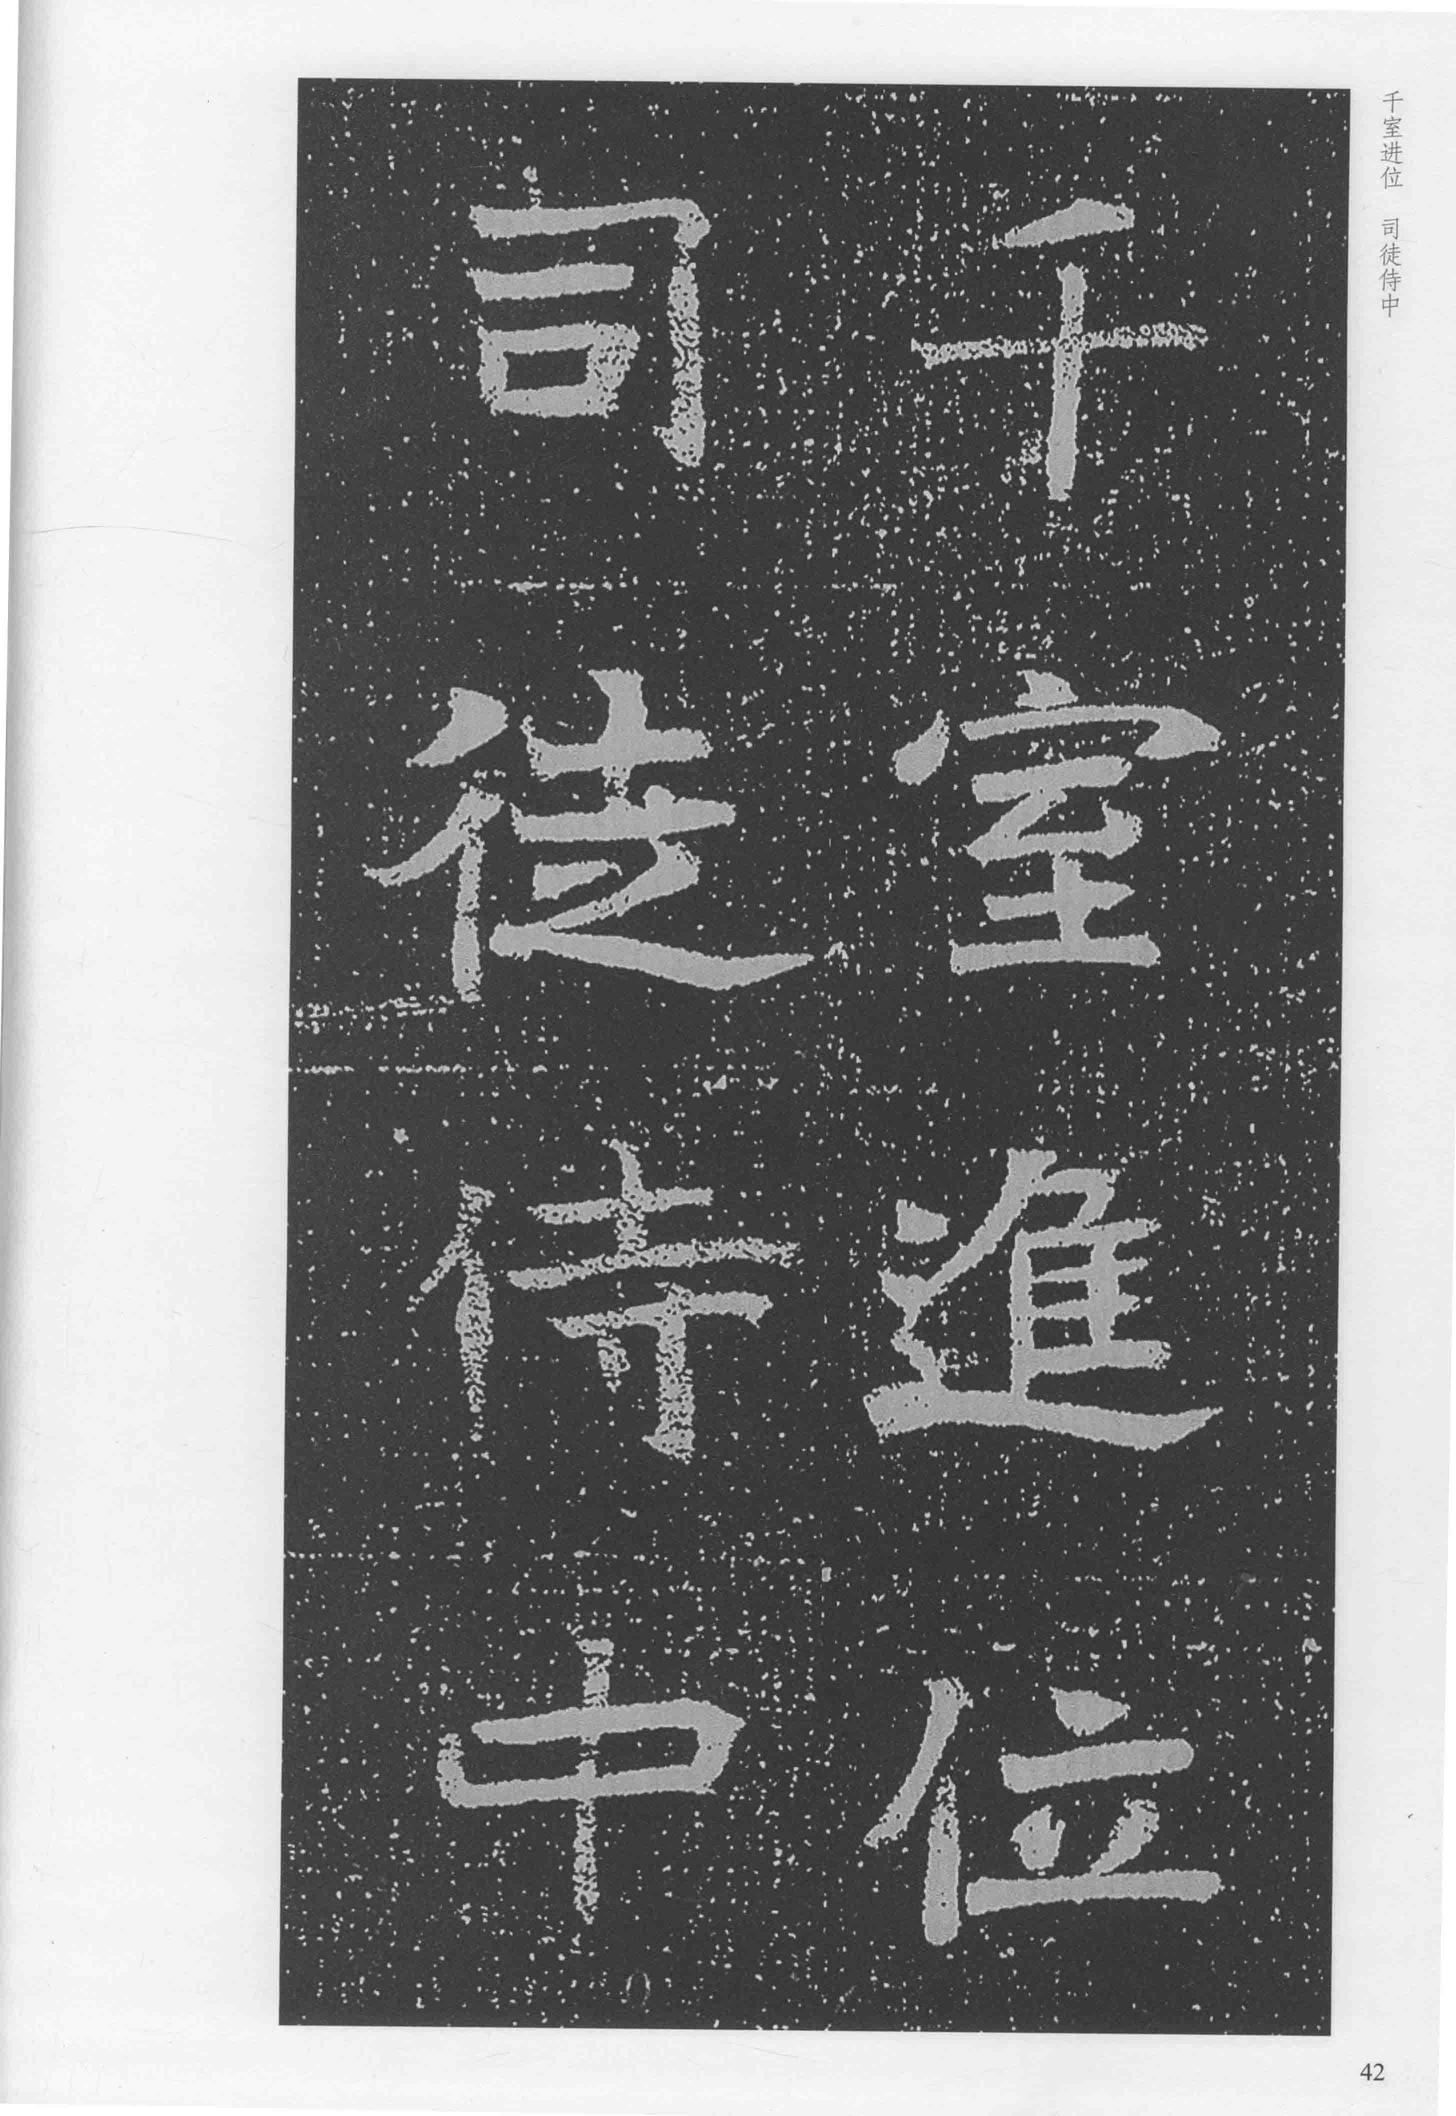 千室进位　司徒侍中
千室進位
司徒侍中
42